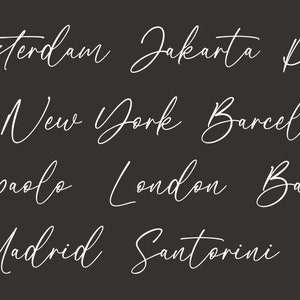 sterdam Jakarta
New York Barcel
paolo London Ba
Madrid Santorini